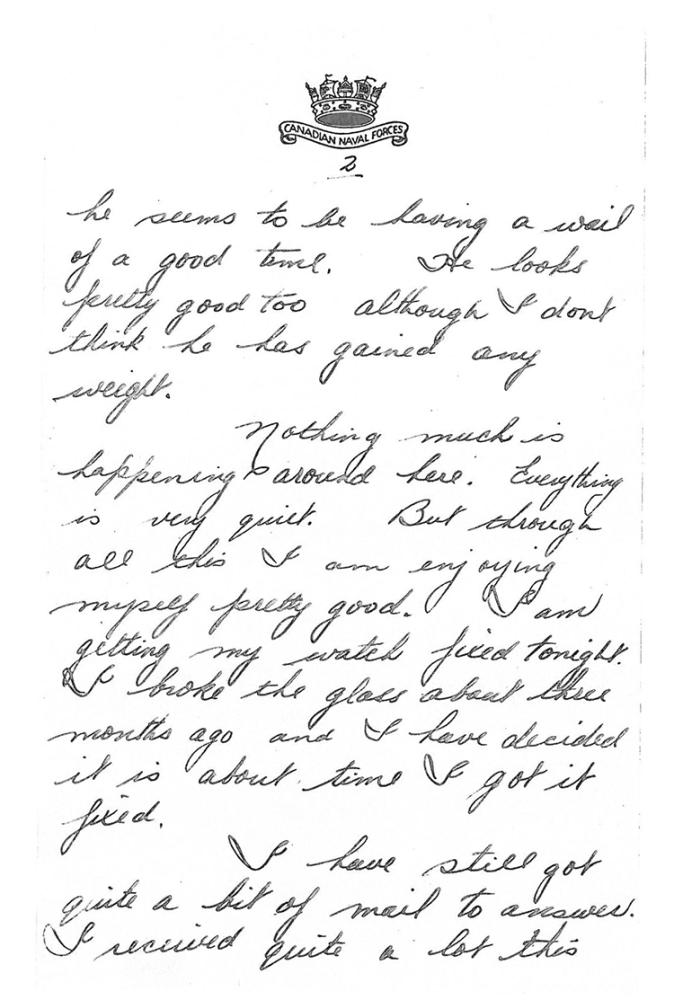 CANADIAN NAVAL FORCES
2
he seems to be having a wail
of a good time. He looks
pretty good too although I dont
think he has gained any
weight.
Nothing much is
happening around here. Everything
is very quiet. But through
all this I am enjoying
myself pretty good. I am
getting my watch fixed tonight.
I broke the glass about three
months ago and I have decided
it is about time I got it
fixed.
I have still got
quite a bit of mail to answer.
I received quite a lot this